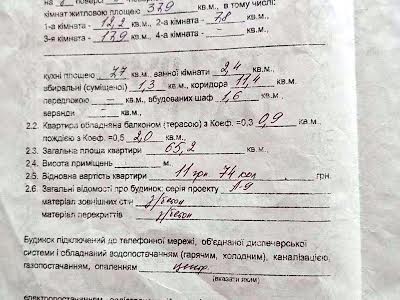 на поверсі
кімнат житловою площею 37,9 кв.м., в тому числі:
1-а кімната - 12,2 кв.м., 2-а кімната - 7,8 кв.м.,
3-я кімната - 17,9 кв.м., 4-а кімната - – кв.м.,
кухні площею 7,7 кв.м., ванної кімнати 2,4 кв.м.,
вбиральні (суміщеної) 1,3 кв.м., коридора 11,4 кв.м.,
передпокою – кв.м., вбудованих шаф 1,6 кв.м.,
веранди – кв.м.,
2.2. Квартира обладнана балконом (терасою) з Коеф. =0,3 0,9 кв.м.,
лоджією з Коеф.=0,5 2,0 кв.м.,
2.3. Загальна площа квартири 65,2 кв.м.,
2.4. Висота приміщень м.
2.5. Відновна вартість квартири 11 грн 74 коп грн.
2.6. Загальні відомості про будинок: серія проекту
матеріал зовнішніх стін з/бетон
матеріал перекриттів з/бетон
Будинок підключений до телефонної мережі, об'єднаної диспечерської
системи і обладнаний водопостачанням (гарячим, холодним), каналізацією,
газопостачанням, опаленням центр.
(вказати яким)
електропостачанням